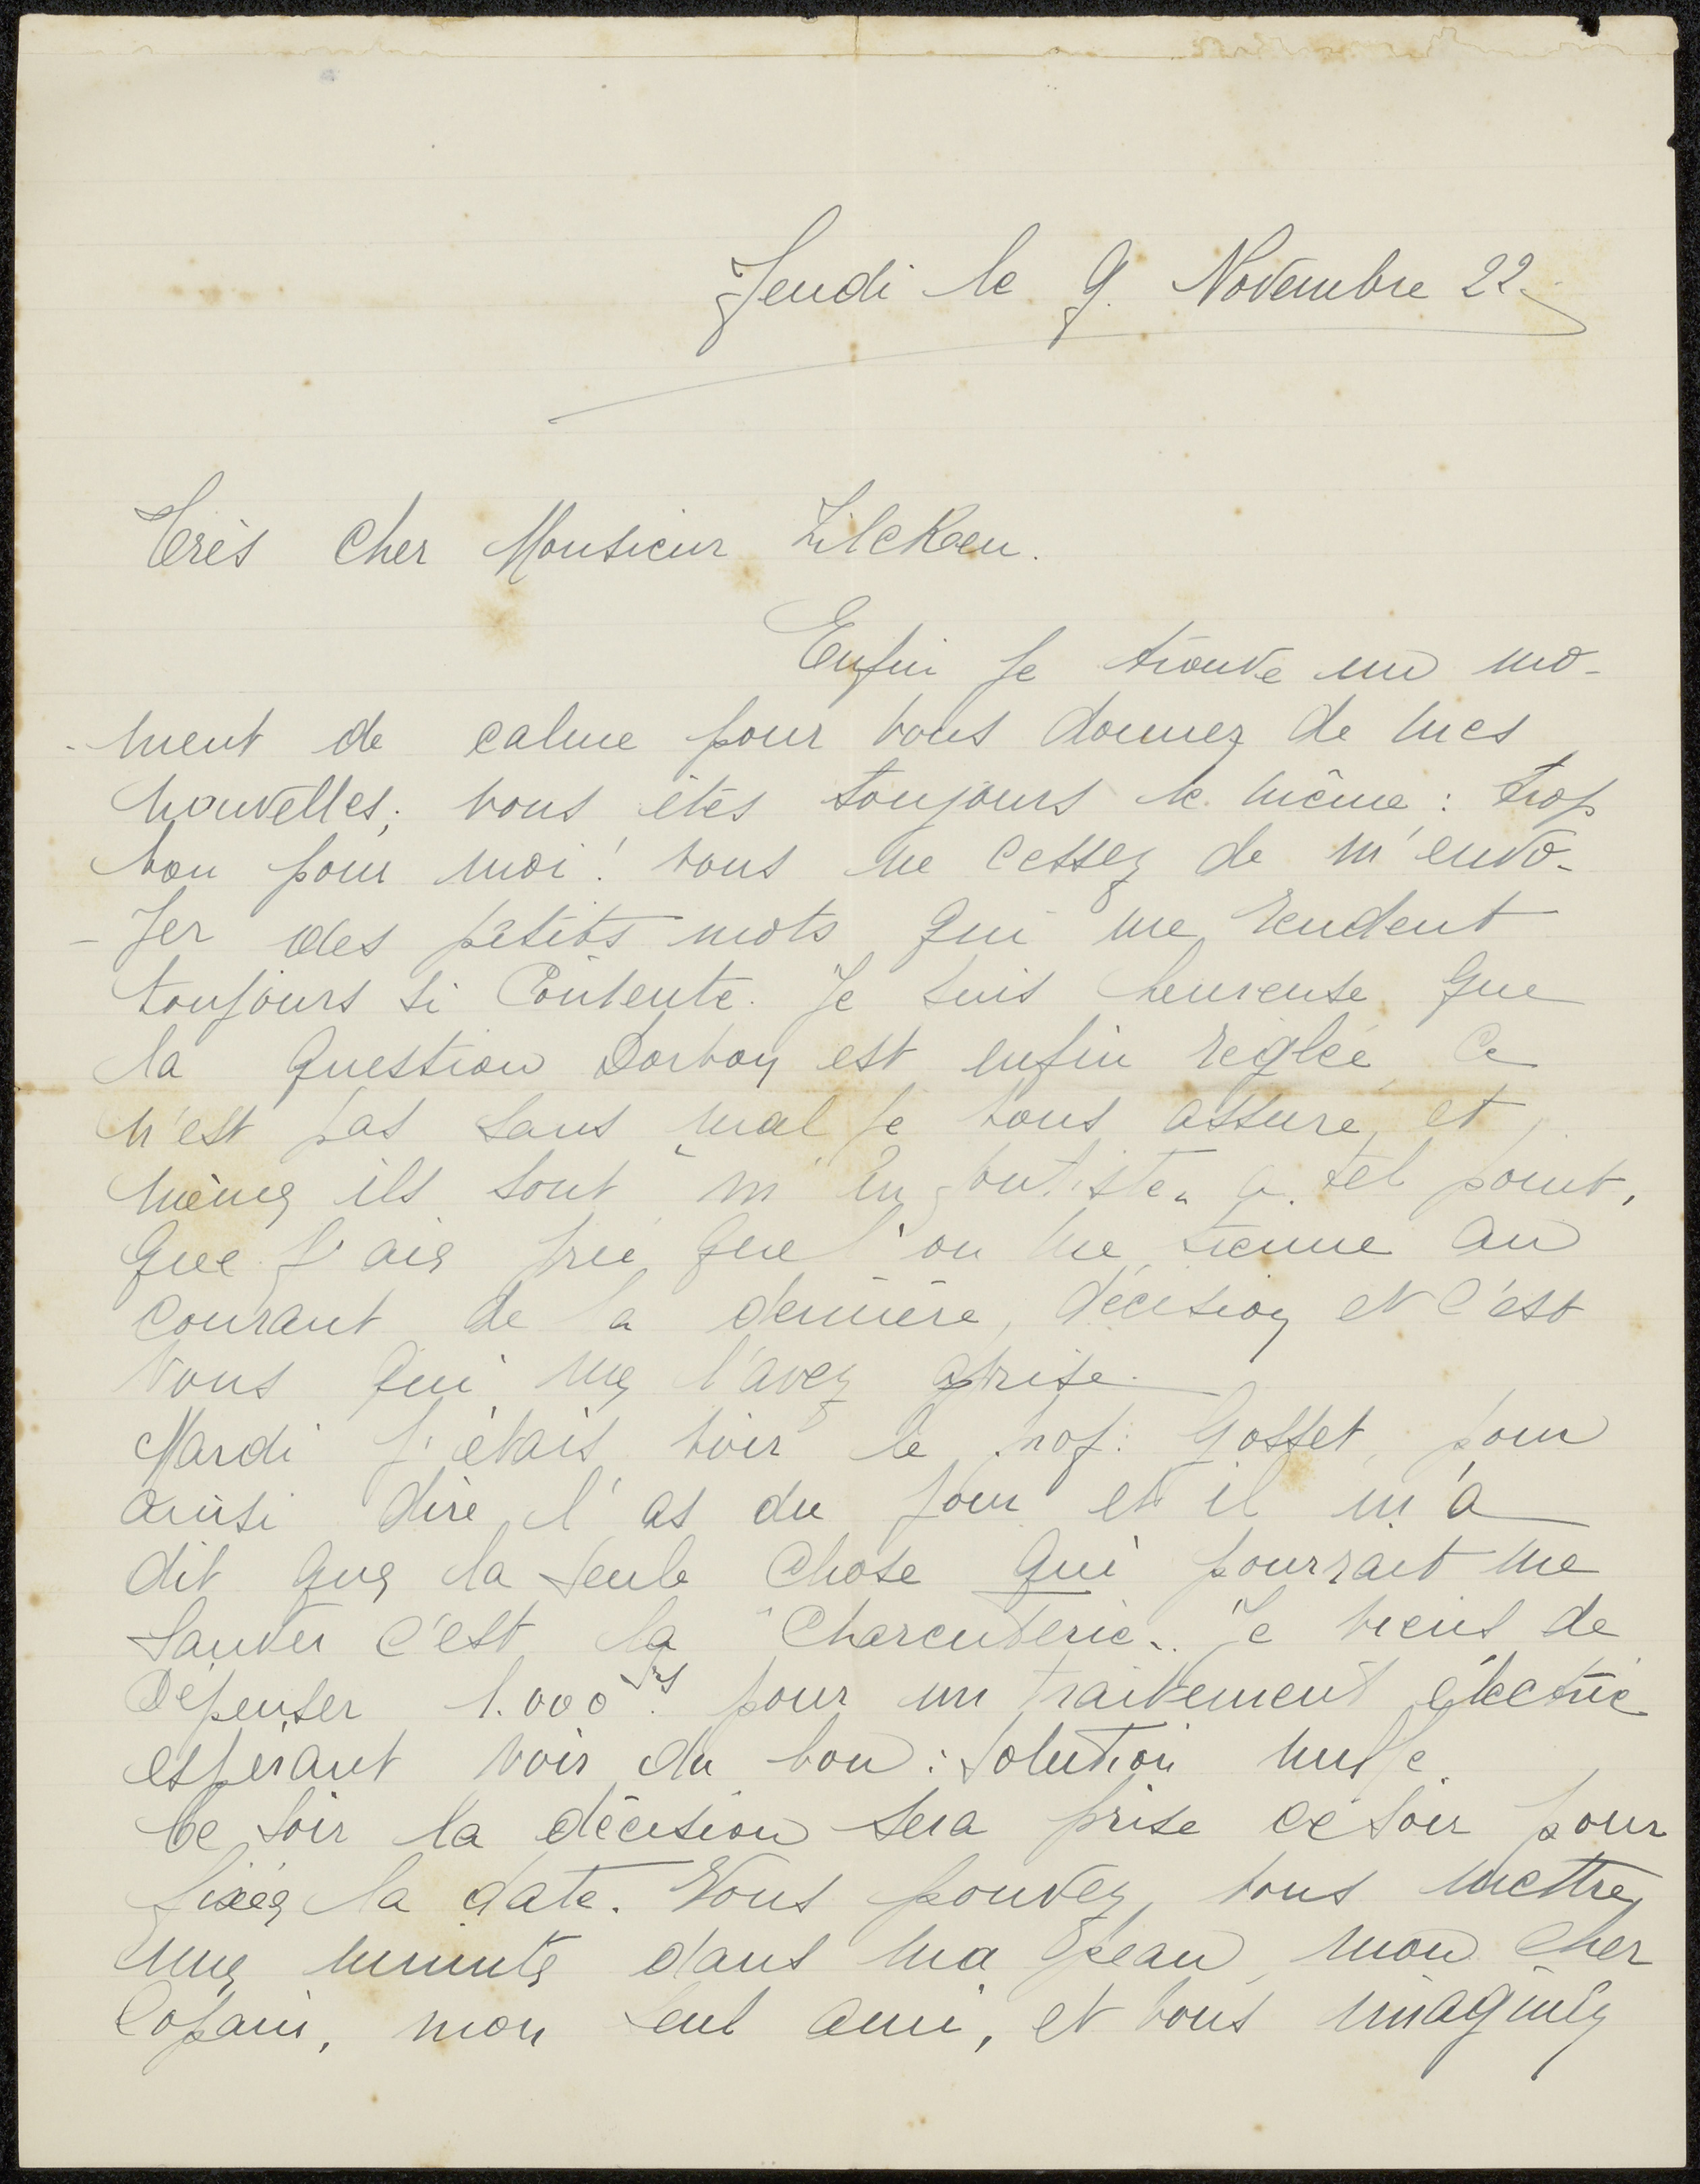 Jeudi le 9. Novembre 22.
Très Cher Monsieur Zilcken.
Enfin je trouve un mo-
-ment de calme pour vous donnez de mes
nouvelles; vous êtes toujours le même : trop
bon pour moi ! vous ne cessez de m'envo-
-yer des petits mots qui me rendent
toujours si contente. Je suis heureuse que
la question Dorbon est enfin réglée, ce
n'est pas sans mal je vous assure, et
même ils sont m' tel point,
que j'ais prié que l'on me tienne au
courant de la dernière, décision et c'est
vous qui me l'avez aprise.
Mardi j'étais voir le prof: Gosset, pour
ainsi dire l'as du jour et il m'a
dit que la seule chose qui pourrait me
sauver c'est la "Charcuterie". Je viens de
dépenser 1.000 frs pour un traitement électric
espérant voir du bon : solution nulle.
Ce soir la décision sera prise ce soir pour
fixée la date. Vous pouvez, vous mettre
une minute dans ma peau, mon cher
Copain, mon seul ami, et vous imaginez